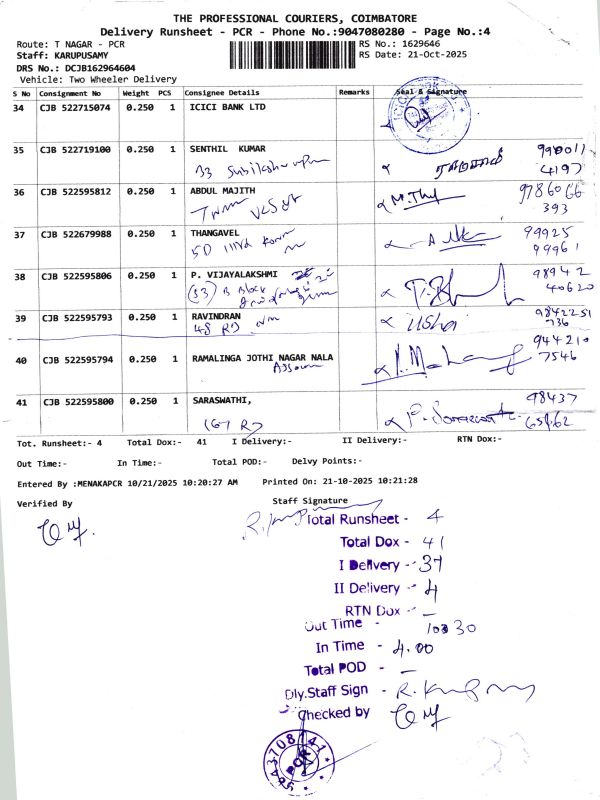 THE PROFESSIONAL COURIERS, COIMBATORE
Delivery Runsheet - PCR - Phone No.:9047080280 - Page No.:4
Route: T NAGAR - PCR
RS No.: 1629646
Staff: KARUPUSAMY
RS Date: 21-Oct-2025
DRS No.: DCJB162964604
Vehicle: Two Wheeler Delivery
S No Consignment No Weight PCS Consignee Details Remarks Seal & Signature
34 CJB 522715074 0.250 1 ICICI BANK LTD
35 CJB 522719100 0.250 1 SENTHIL KUMAR
33
4197
36 CJB 522595812 0.250 1 ABDUL MAJITH
9786066
393
37 CJB 522679988 0.250 1 THANGAVEL
99925
5D
99961
38 CJB 522595806 0.250 1 P. VIJAYALAKSHMI
98942
(33) B Block
40620
39 CJB 522595793 0.250 1 RAVINDRAN
Usha
9842251
48 RD
736
40 CJB 522595794 0.250 1 RAMALINGA JOTHI NAGAR NALA
944210
7546
41 CJB 522595800 0.250 1 SARASWATHI,
98437
167 RD
Tot. Runsheet:- 4 Total Dox:- 41 I Delivery:- II Delivery:- RTN Dox:-
Out Time:- In Time:- Total POD:- Delvy Points:-
Entered By :MENAKAPCR 10/21/2025 10:20:27 AM Printed On: 21-10-2025 10:21:28
Verified By Staff Signature
Total Runsheet - 4
Total Dox - 41
I Delivery - 37
II Delivery - 4
RTN Dox - —
Out Time - 30
In Time - 4.00
Total POD - —
Dly.Staff Sign -
Checked by
PCR